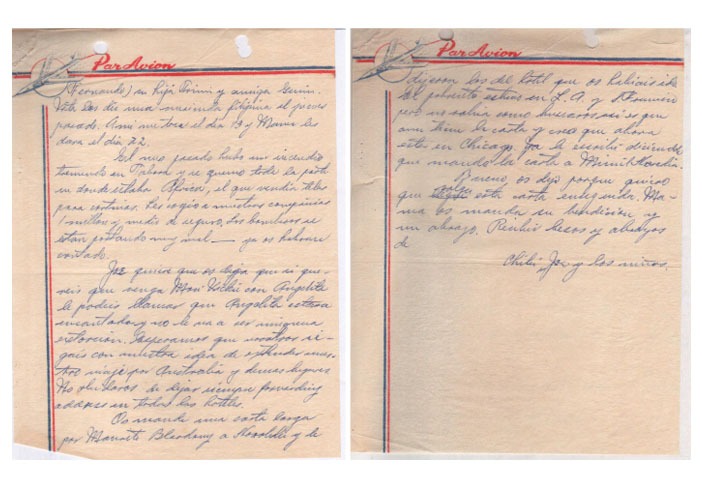 Par Avion
(Fernando) su hija Mimi y amiga
Vita les dio una merienda filipina el jueves
pasado. A mi me toca el día 19 y Mamá les
dará el día 22.
El mes pasado hubo un incendio
tremendo en y se quemó toda la parte
en donde estaba Africa, el que vendía telas
para cortinas. Les cogió a nuestras compañías
1 millon y medio de seguro. Los bomberos se
están portando muy mal — ya os habrán
contado.
Joe quiere que os diga que si que-
reis que venga Mari Vicki con Angelita
la podeis llamar que Angelita estaria
encantada y no le va a ser ninguna
extorsión. Esperamos que vosotros si-
gais con nuestra idea de extender vues-
tro viaje por Australia y demas lugares
No olvidaros de dejar siempre forwarding
address en todos los hoteles.
Os mandé una carta larga
por a Honolulu y le
Par Avion
dijeron los del hotel que os habiais ido
El pobrecito estuvo en L.A. y S. Francisco
pero no sabia como buscaros asi es que
aun tiene la carta y creo que ahora
esta en Chicago. Ya le escribi diciendo
que mande la carta a
Bueno, os dejo porque quiero
que salga esta carta enseguida. Ma-
má os manda su bendicion y
un abrazo. Recibir besos y abrazos
de
Chibi, Joe y los niños.